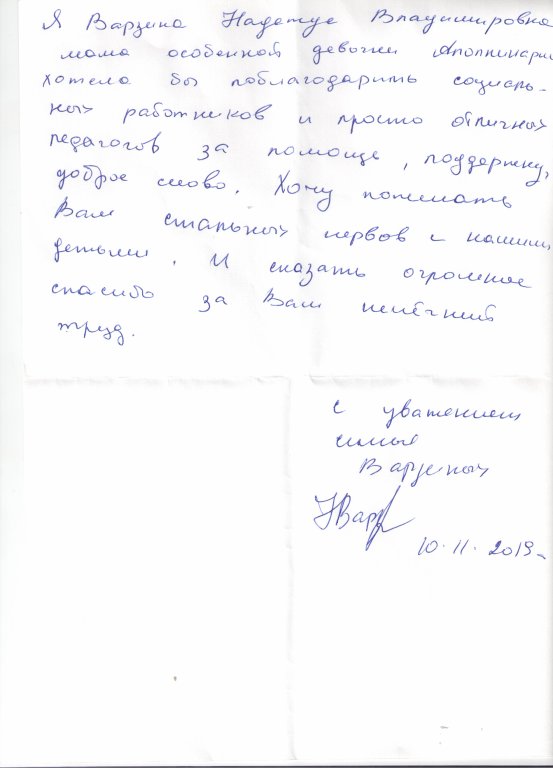 Я Варзина Надежде Владимировна
мама особенной девочки Аполлинарии
хотела бы поблагодарить социаль-
ных работников и просто отличных
педагогов за помощь, поддержку,
доброе слово. Хочу пожелать
Вам стальных нервов с нашими
детьми. И сказать огромное
спасибо за Ваш нелёгкий
труд.
с уважением
семья
Варзиных
НВарз
10.11.2019